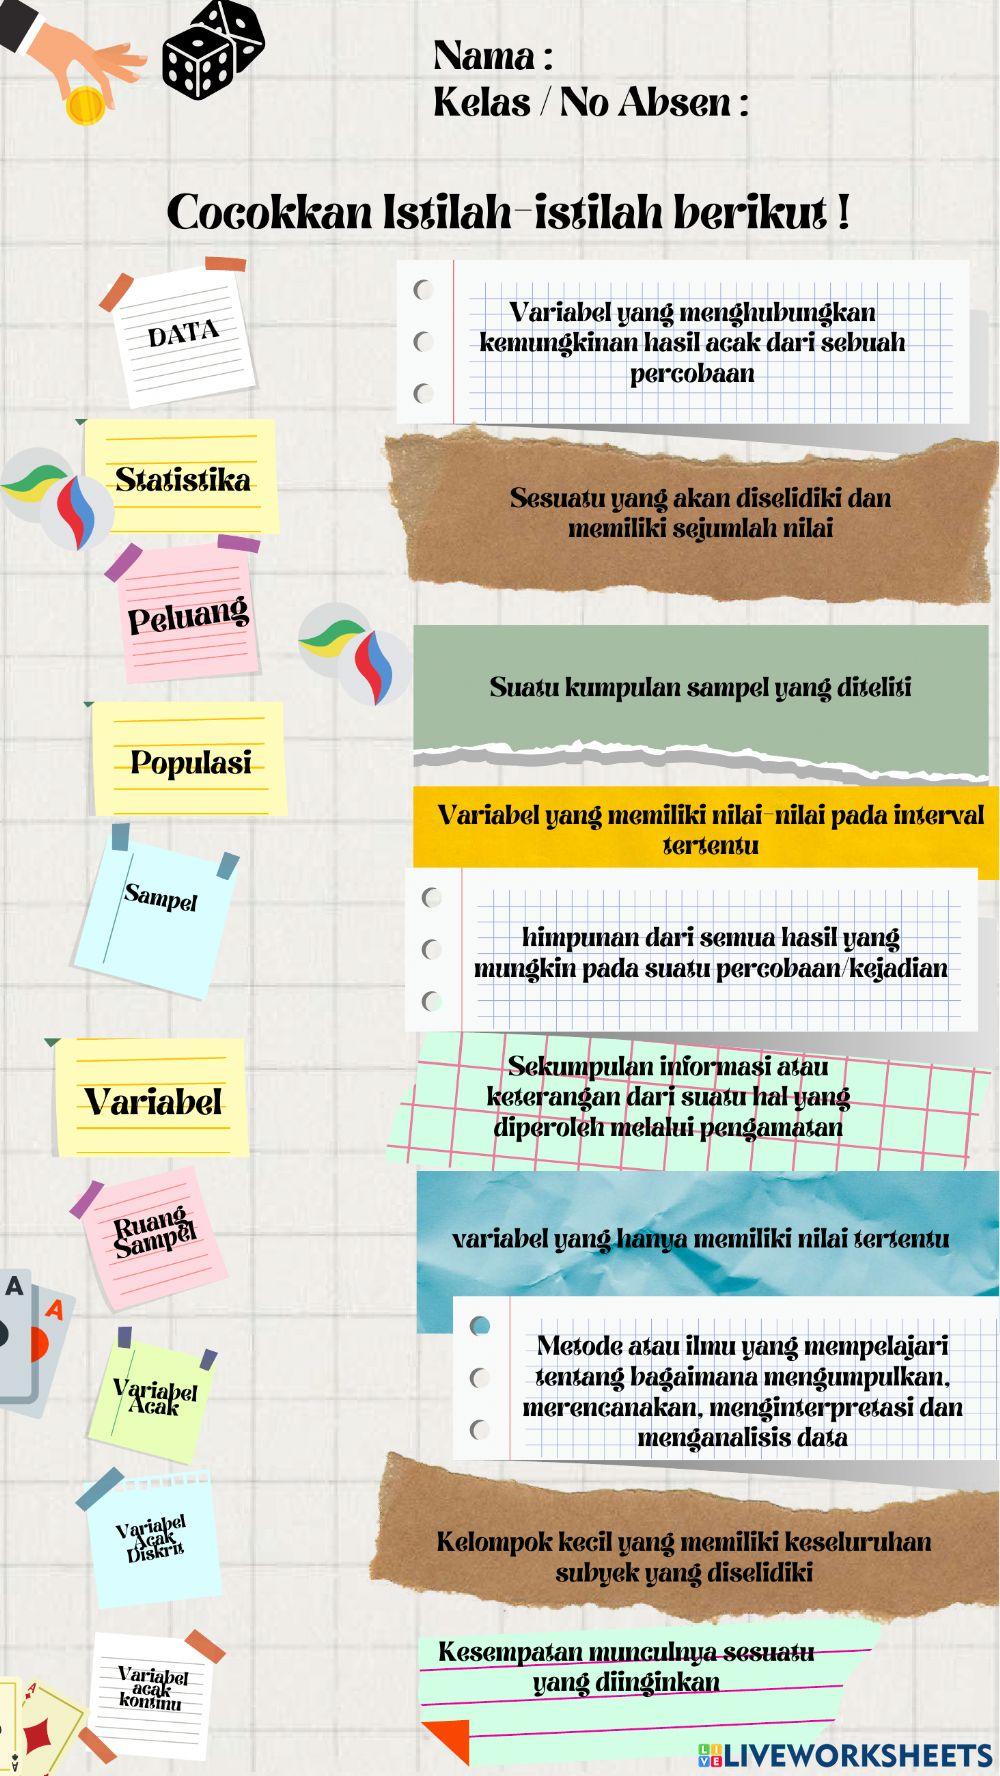 Nama :
Kelas / No Absen :
Cocokkan Istilah-istilah berikut !
DATA
Variabel yang menghubungkan
kemungkinan hasil acak dari sebuah
percobaan
Statistika
Sesuatu yang akan diselidiki dan
memiliki sejumlah nilai
Peluang
Suatu kumpulan sampel yang diteliti
Populasi
Variabel yang memiliki nilai-nilai pada interval
tertentu
Sampel
himpunan dari semua hasil yang
mungkin pada suatu percobaan/kejadian
Variabel
Sekumpulan informasi atau
keterangan dari suatu hal yang
diperoleh melalui pengamatan
Ruang
Sampel
variabel yang hanya memiliki nilai tertentu
A
A
Variabel
Acak
Metode atau ilmu yang mempelajari
tentang bagaimana mengumpulkan,
merencanakan, menginterpretasi dan
menganalisis data
Variabel
Acak
Diskrit
Kelompok kecil yang memiliki keseluruhan
subyek yang diselidiki
Variabel
acak
kontinu
Kesempatan munculnya sesuatu
yang diinginkan
A
A
LIVE LIVEWORKSHEETS